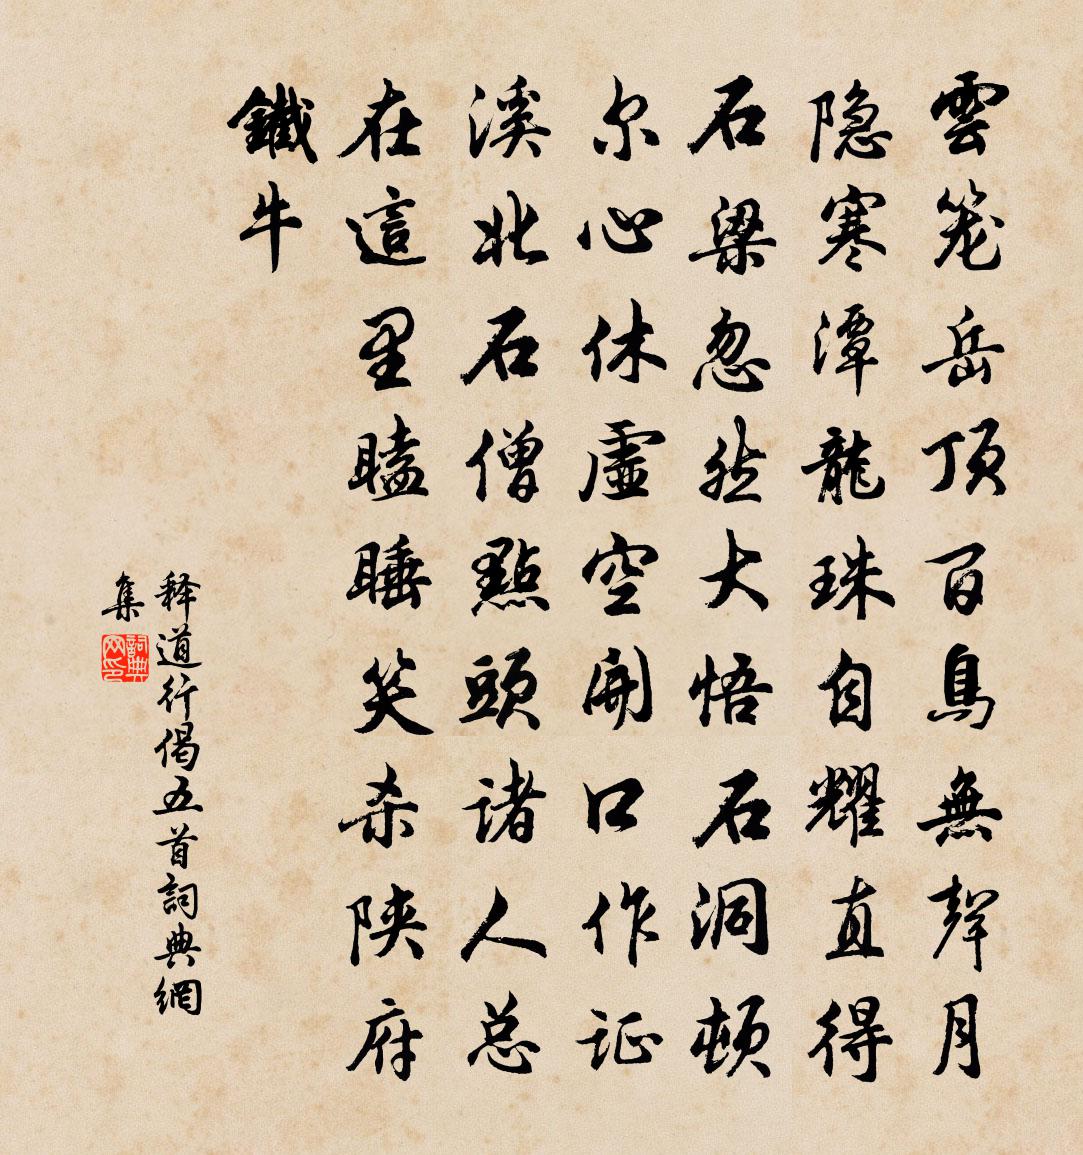 雲笼岳顶百鳥無聲月
隐寒潭龍珠自耀直得
石梁忽然大悟石洞顿
尔心休虚空開口作证
溪北石僧點頭諸人总
在這里瞌睡笑杀陕府
鐵牛
释道行偈五首詞典網
集
詞典
网印